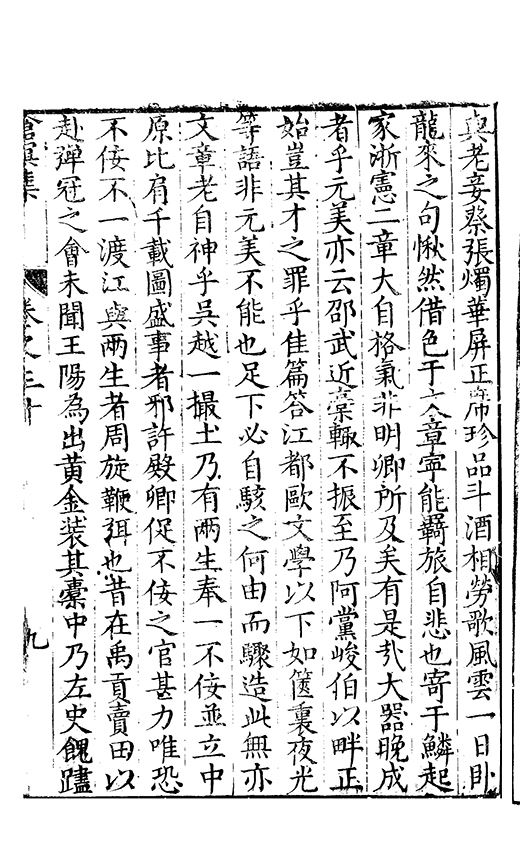 與老妾蔡張燭華屏正席珍品斗酒相勞歌風雲一日卧
龍來之句愀然借色于文章寧能羇旅自悲也寄于鱗起
家浙憲二章大自格氣非明卿所及矣有是哉大器晚成
者乎元美亦云邵武近藁輙不振至乃阿黨峻伯以畔正
始豈其才之罪乎佳篇答江都歐文學以下如篋裏夜光
等語非元美不能也足下必自駭之何由而驟造此無亦
文章老自神乎吳越一撮土乃有兩生奉一不佞並立中
原比肩千載圖盛事者邪許殿卿促不佞之官甚力唯恐
不佞不一渡江與兩生者周旋鞭弭也昔在禹貢賣田以
赴彈冠之會未聞王陽為出黃金装其橐中乃左史餽䞉
滄溟集
卷之三十
九